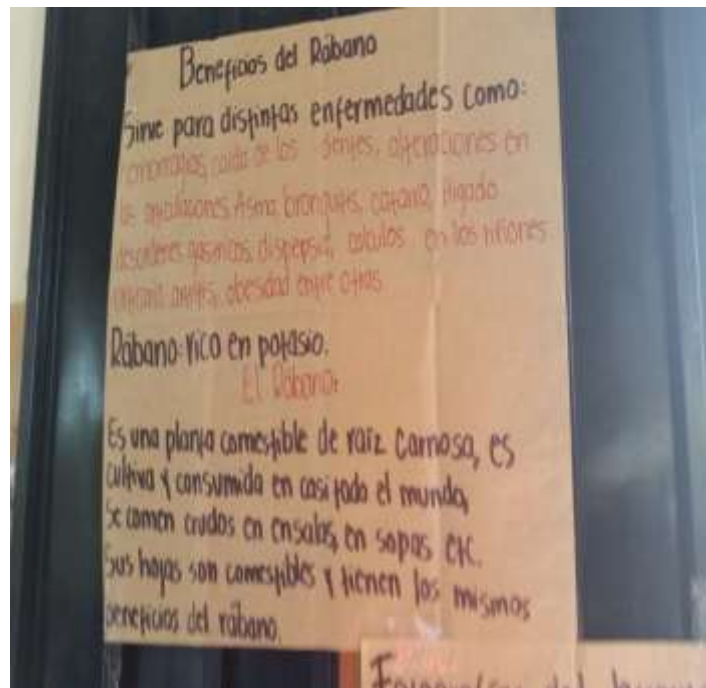 Beneficios del Rábano
Sirve para distintas enfermedades como:
caida de los dientes, alteraciones en
las Asma bronquitis, catarro, Higado
desordenes dispepsia, calculos en los riñones
obesidad entre otras.
Rábano: rico en potasio.
El Rábano:
Es una planta comestible de raiz carnosa, es
cultiva y consumida en casi todo el mundo,
Se comen crudos en ensalas, en sopas etc.
Sus hojas son comestibles y tienen los mismos
beneficios del rábano.